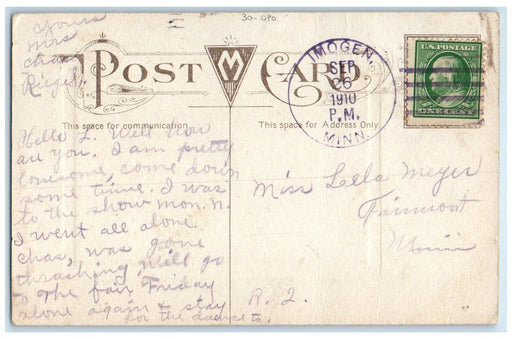 30-OPO
Yours
Mrs
Chas
Riegel
POST CARD
M
IMOGEN,
SEP
26
1910
P.M.
MINN.
U.S. POSTAGE
ONE CENT
This space for communication
This space for Address Only
Hello L. Well how
are you. I am pretty
lonesome, come down
some time. I was
to the show mon. N.
I went all alone.
Chas, was gone
thrashing, will go
to the fair Friday
alone again & stay
for the dance to,
Miss Lela Meyer
Fairmont
Minn
R. 2.